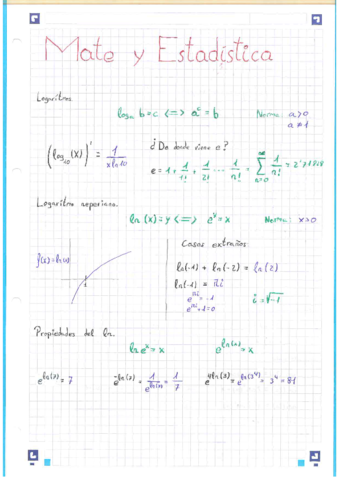 Mate y Estadística
Logaritmos
logₐ b = c <=> aᶜ = b Normas: a>0
a≠1
(log₁₀(x))' = 1/(x ln 10)
¿De donde viene e?
e = 1 + 1/1! + 1/2! ... 1/n! = ∑ₙ₌₀^∞ 1/n! = 2'71828
Logaritmo neperiano.
ln (x) = y <=> eʸ = x Norma: x>0
f(x) = ln(x)
1
Casos extraños:
ln(-1) + ln(-2) = ln(2)
ln(-1) = πi
e^(πi) = -1
e^(πi) + 1 = 0
i = √-1
Propiedades del ln.
ln eˣ = x e^(ln(x)) = x
e^(ln(7)) = 7 e^(-ln(7)) = 1/e^(ln(7)) = 1/7 e^(4ln(3)) = e^(ln(3⁴)) = 3⁴ = 81